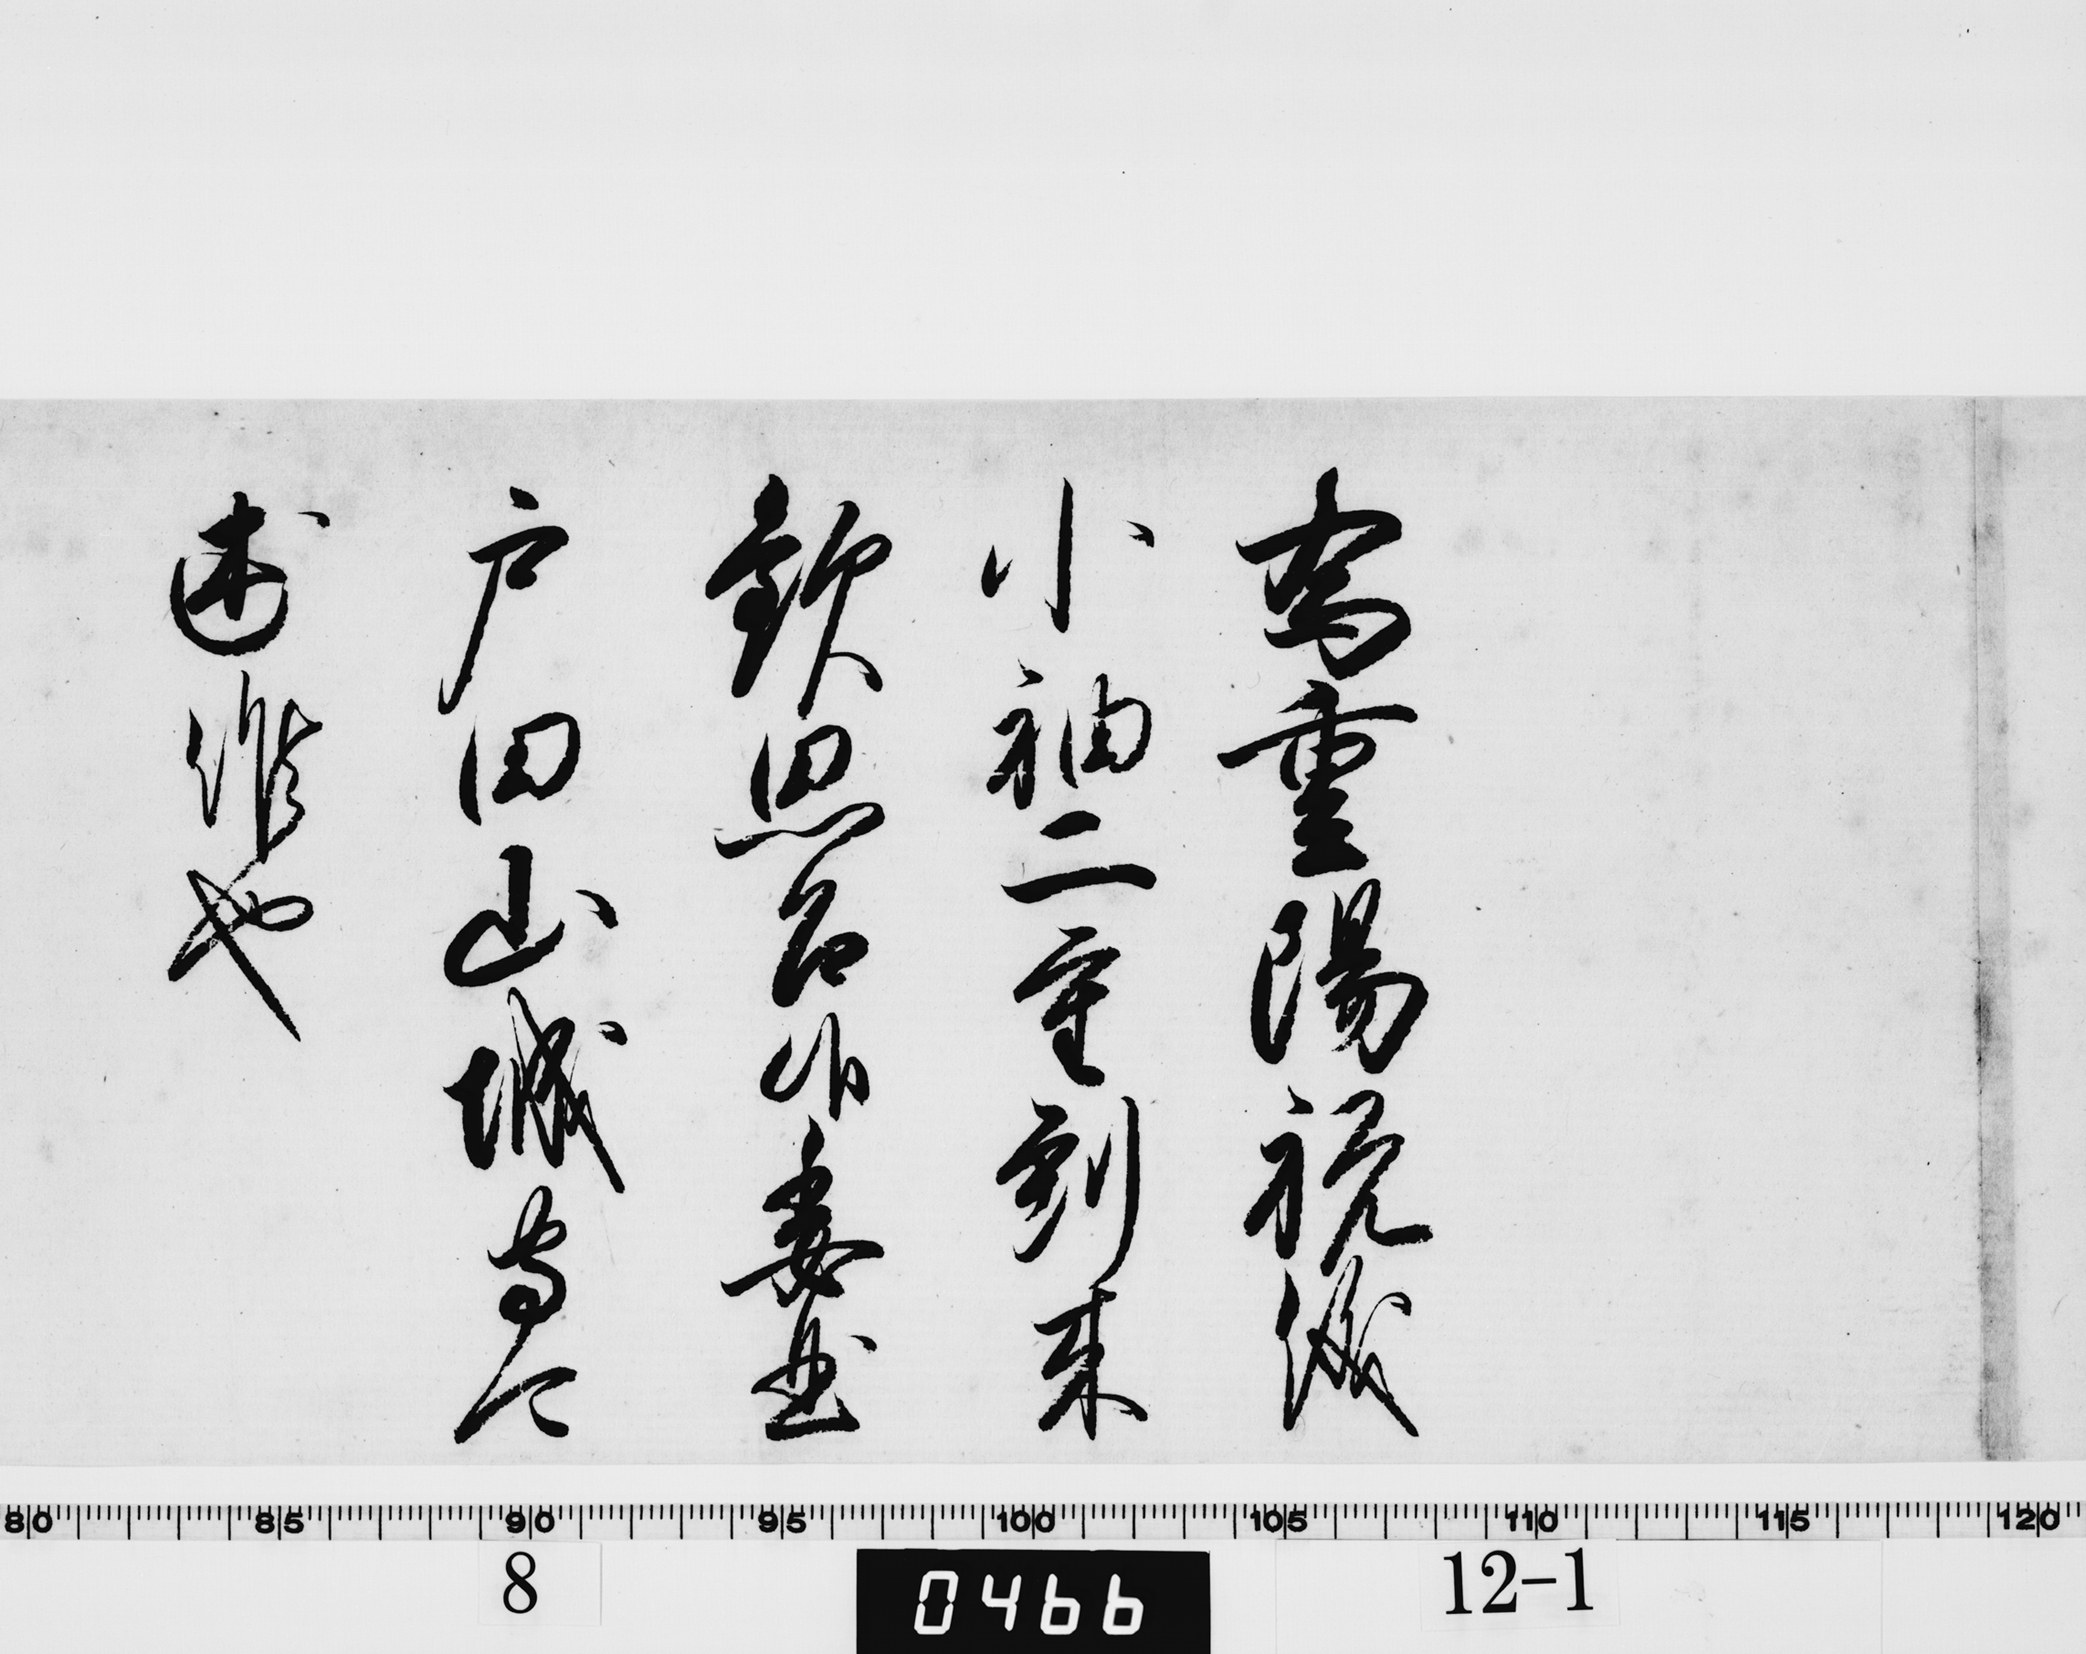 為重陽祝儀
小袖二重到来
歓思召候委曲
戸田山城守可
述候也
80 85 90 95 100 105 110 115 120
8 0466 12-1